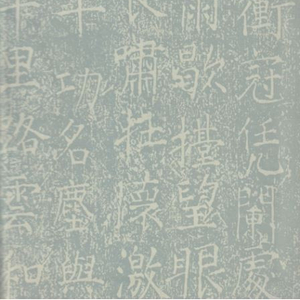 衝冠凭闌處
雨歇擡望眼
長嘯壯懷激
十功名塵與
千里路雲和